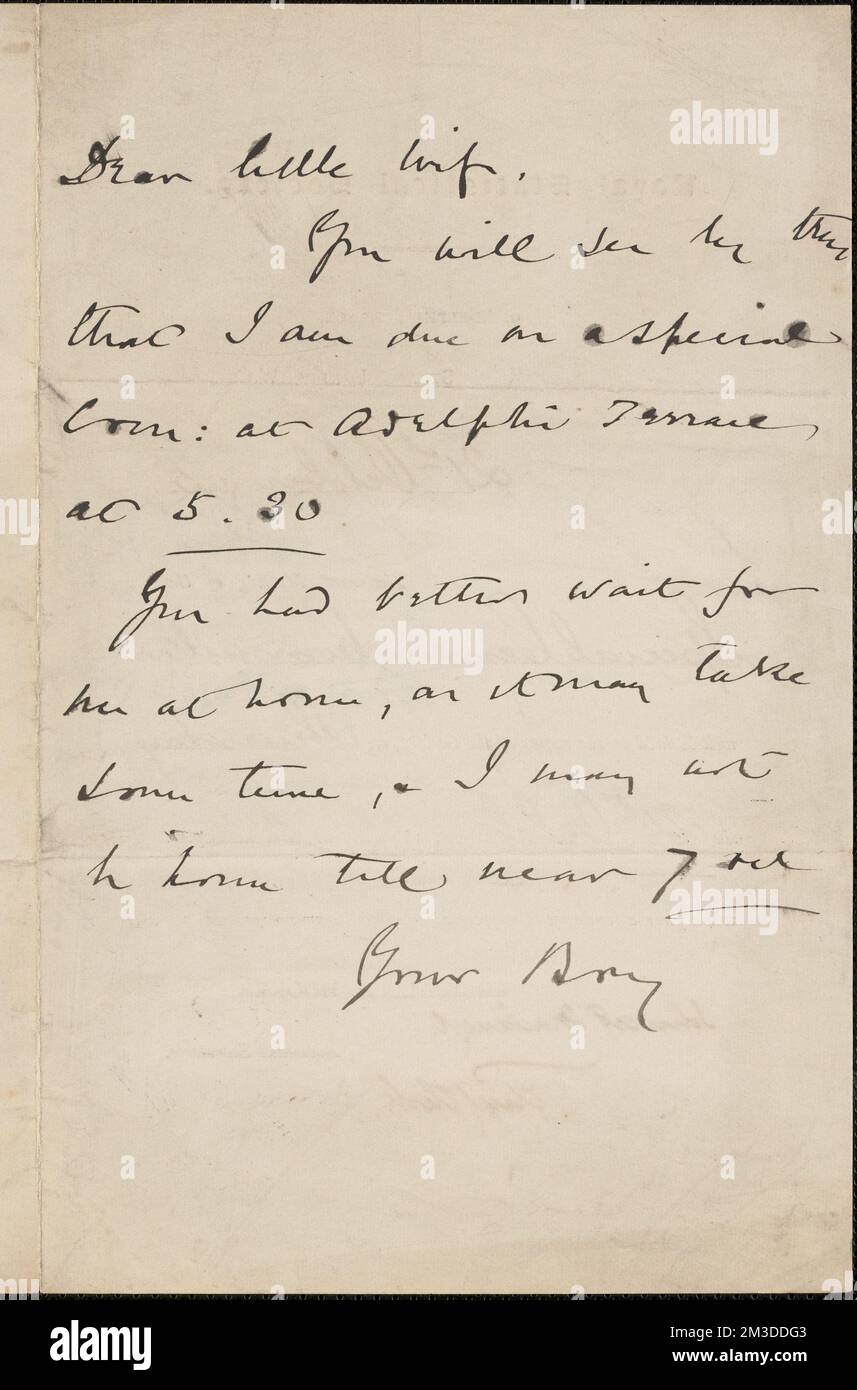 Dear little wife,
You will see by this
that I am due on a special
Com: at Adelphi Terrace
at 5.30
You had better wait for
me at home, as it may take
some time, & I may not
be home till near 7 ock
Your Boy
alamy
Image ID: 2M3DDG3
www.alamy.com